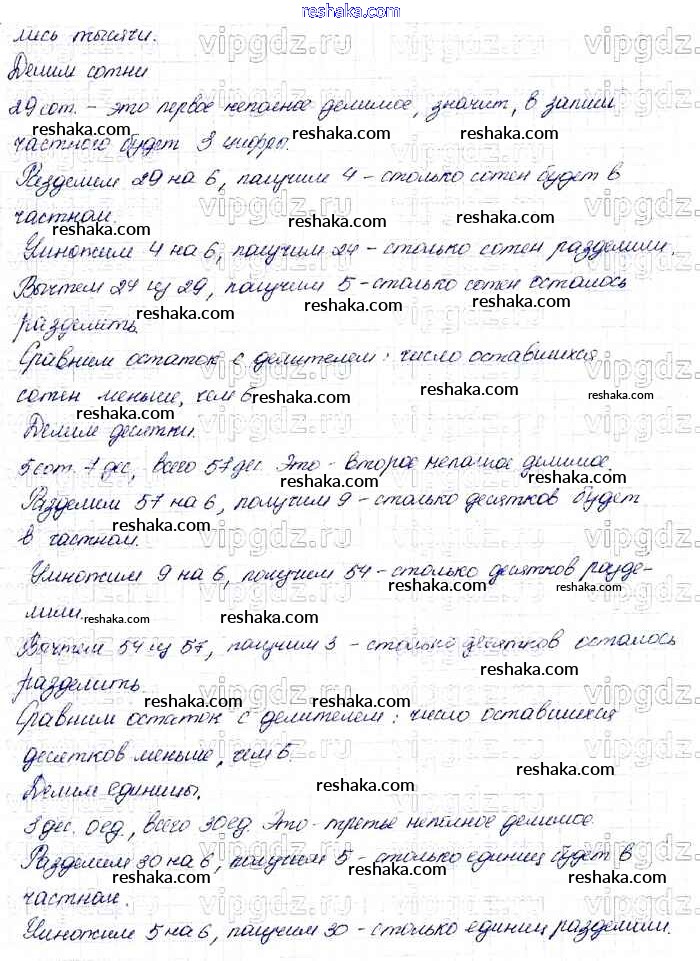 reshaka.com
лись тысячи.
Делим сотни
29 сот. - это первое неполное делимое, значит, в записи
частного будет 3 цифры.
Разделим 29 на 6, получим 4 - столько сотен будет в
частном.
Умножим 4 на 6, получим 24 - столько сотен разделили.
Вычтем 24 из 29, получим 5 - столько сотен осталось
разделить.
Сравним остаток с делителем: число оставшихся
сотен меньше, чем 6.
Делим десятки.
5 сот. 7 дес., всего 57 дес. Это - второе неполное делимое.
Разделим 57 на 6, получим 9 - столько десятков будет
в частном.
Умножим 9 на 6, получим 54 - столько десятков разде-
лили.
Вычтем 54 из 57, получим 3 - столько десятков осталось
разделить.
Сравним остаток с делителем: число оставшихся
десятков меньше, чем 6.
Делим единицы.
3 дес. 0 ед., всего 30 ед. Это - третье неполное делимое.
Разделим 30 на 6, получим 5 - столько единиц будет в
частном.
Умножим 5 на 6, получим 30 - столько единиц разделили.